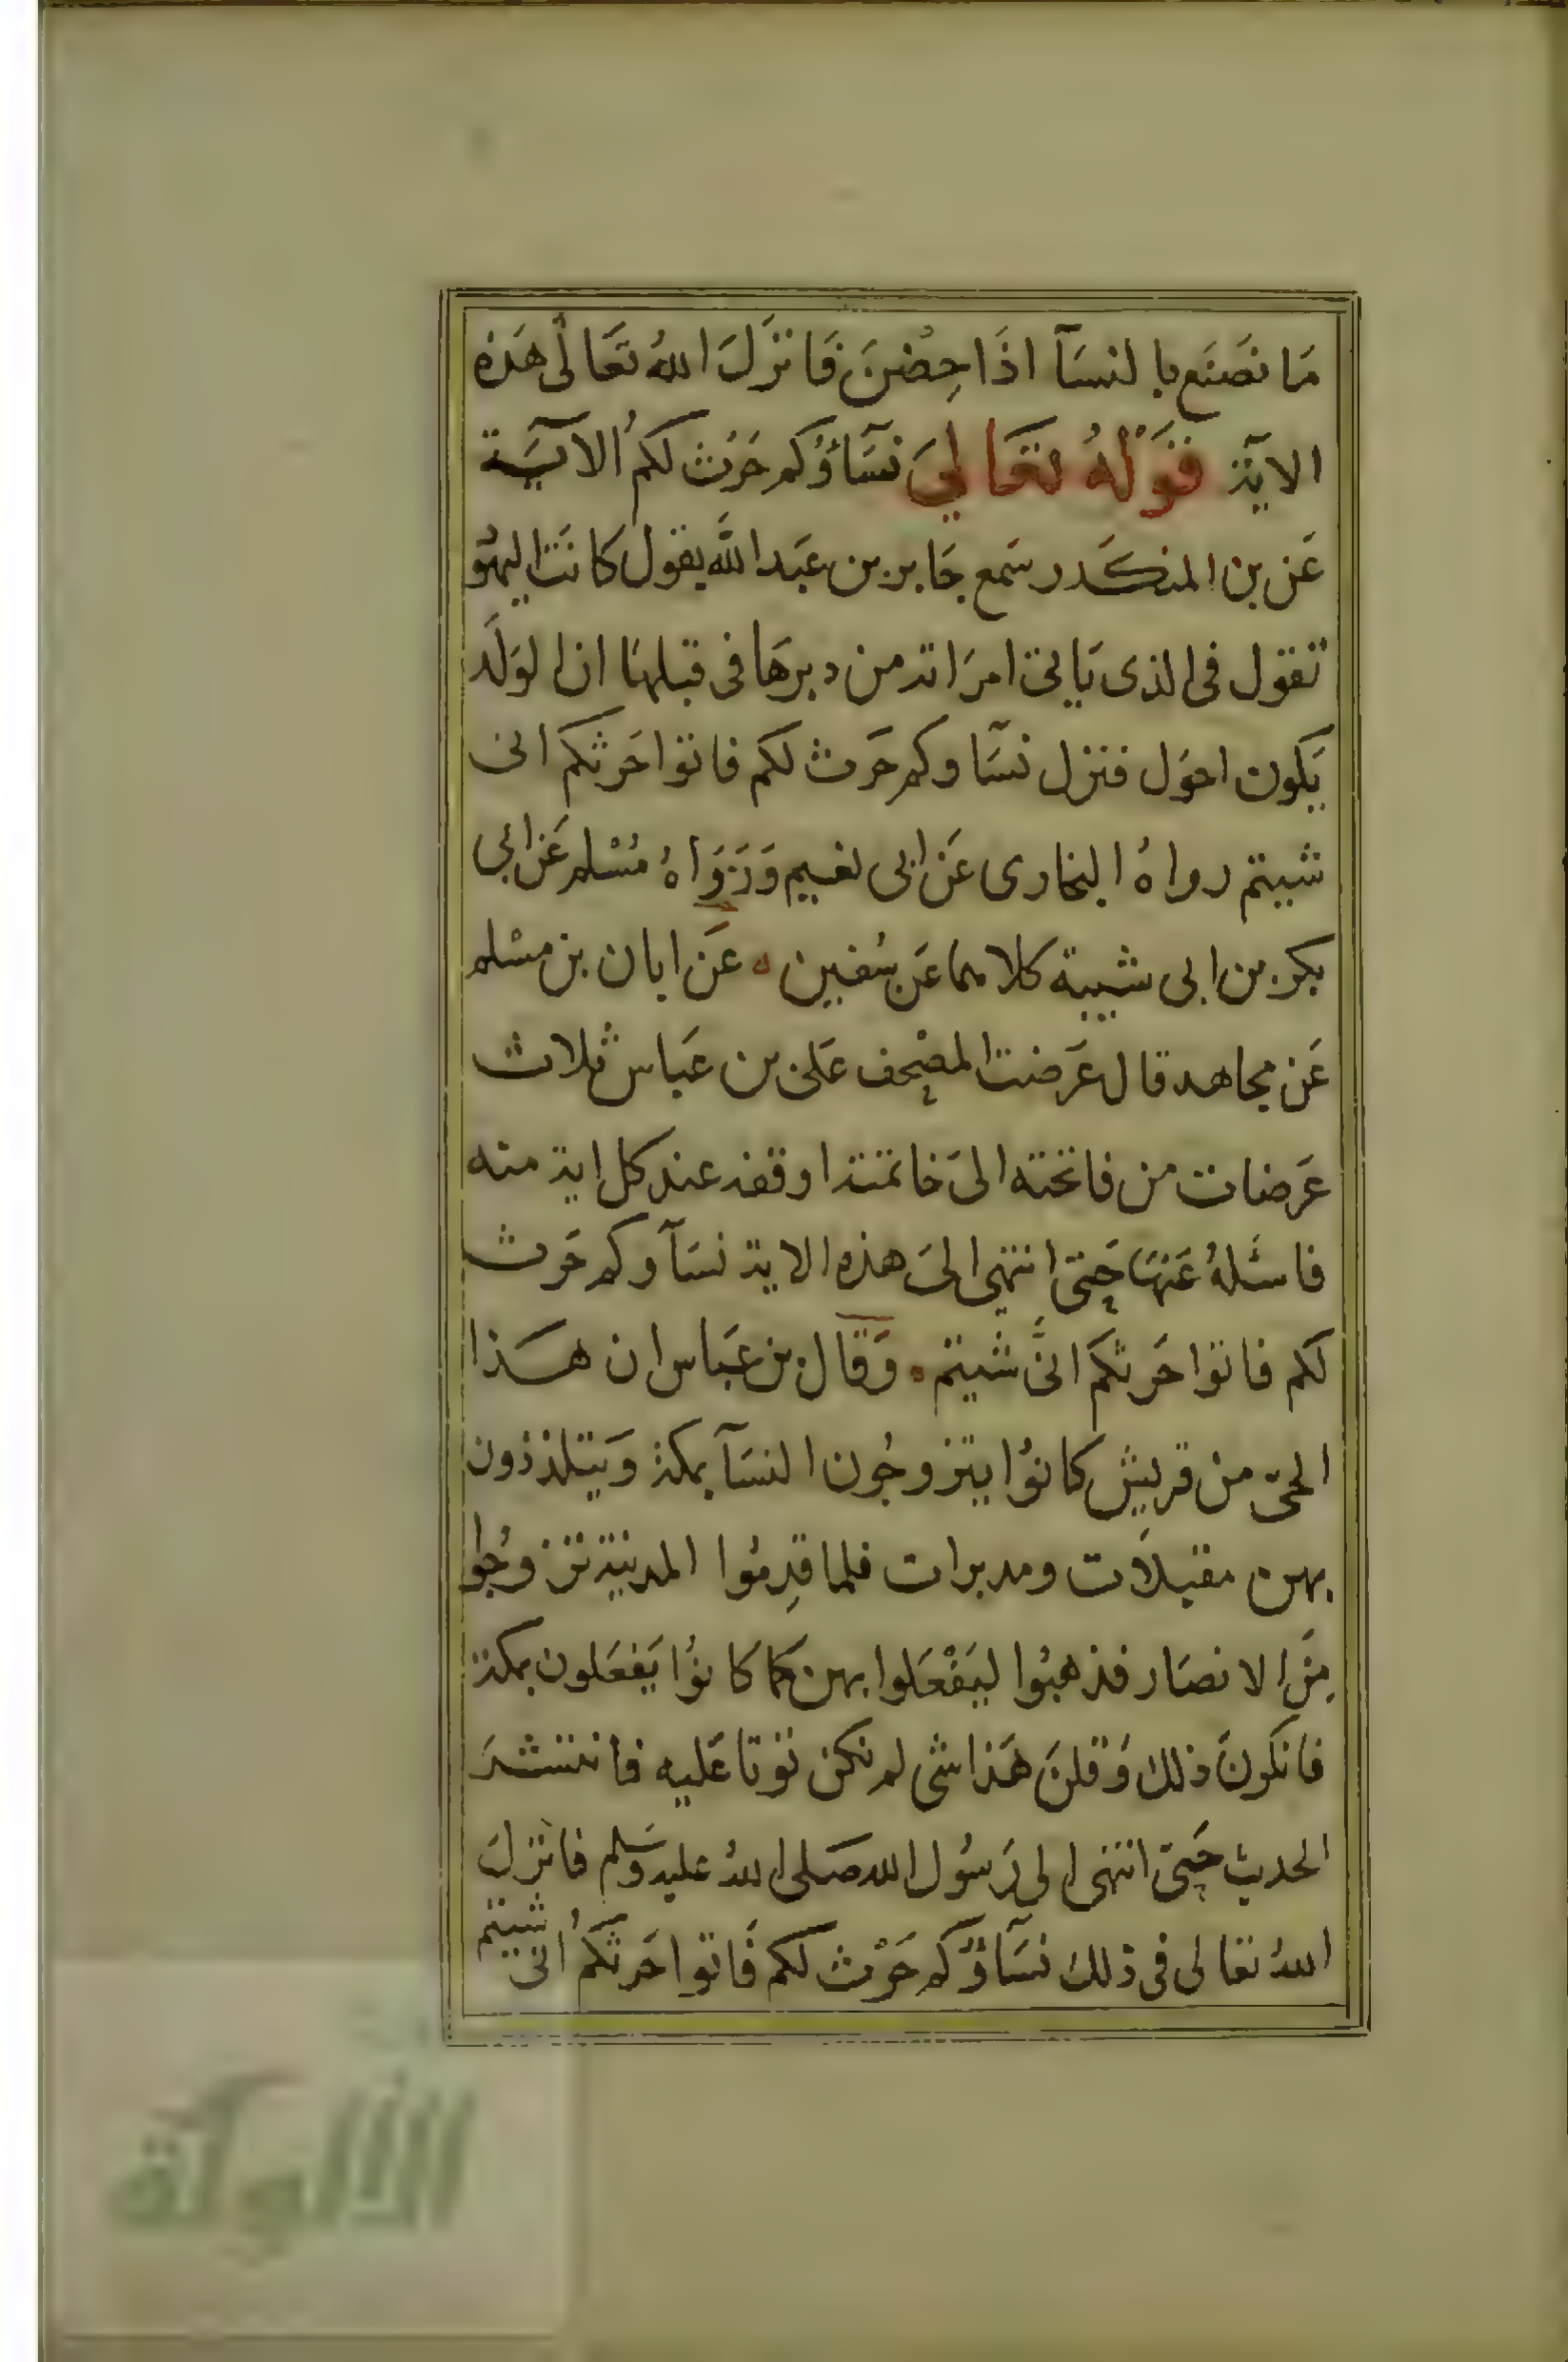 مَا نصَنَع بالنسَآ اذَا حِضْنَ فَانزَلَ اللهُ تعَالٰى هَذه
الاية قَوْلهُ تعَالىَ نسَآؤُكم حَرْث لكمُ الآيَة
عَن بن المنكَدر سَمع جَابر بن عَبد اللَّه يقول كانَت اليهُو
تقول فى الذى يَاتى امرَاته من دبرهَا فى قبلهَا ان الولَد
يَكون احوَل فنزل نسَآوكم حَرث لكم فاتوا حَرثكم انى
شيتم رواهُ البخارى عَن ابى نعيم وَرَوَاهُ مُسْلم عَن ابى
بكر بن ابى شيبة كلاهما عَن سُفين ه عَن ابان بن مسْلم
عَن مجاهد قال عَرَضت المصْحف عَلى بن عَباس ثلاث
عَرضات من فاتحته الىَ خاتمته اوقفه عند كل اية منه
فاسْئلهُ عَنهَا حَتى انتهى الىَ هذه الاية نسَآوكم حَرث
لكم فاتوا حَرثكم انَّى شيتم ه وَقال بن عَبَاس ان هَذا
الحَى من قريش كانوُا يتزوجُون النسَآ بمكة وَيتلذذون
بهن مقبلَات ومدبرات فلما قدِمُوا المدينة تزوجُوا
مِنَ الانصَار فذهبُوا ليَفْعَلوا بهن كمَا كانوُا يَفعَلون بمكة
فانكرنَ ذلك وَقلنَ هَذا شى لم نكن نوتا عَليه فانتشرَ
الحديث حَتى انتهى الى رَسُول الله صَلى اللهُ عليه وسَلم فانزلَ
اللهُ تعالى فى ذلك نسَآؤُكم حَرْث لكم فَاتوا حَرثكمُ انى شيتم
الألوكة